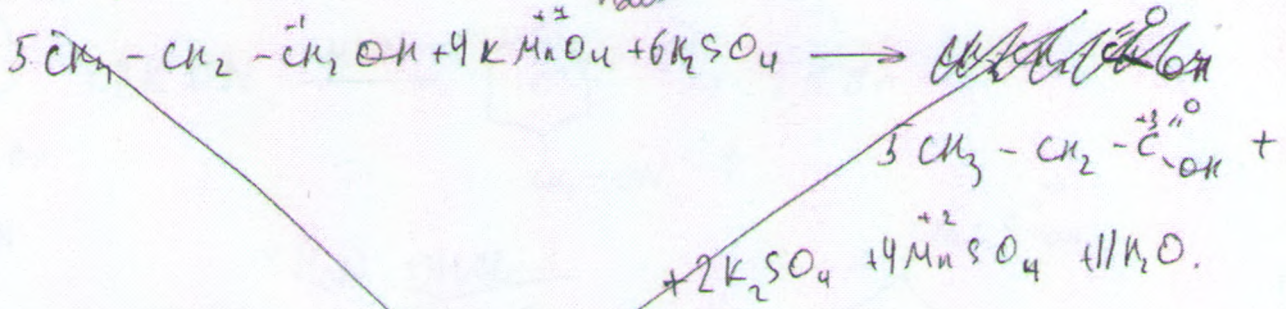 5 CH₃ – CH₂ – C⁻¹H₂ OH + 4 K Mn⁺⁷O₄ + 6 H₂SO₄ ⟶
5 CH₃ – CH₂ – C⁺³ =O –OH +
+ 2 K₂SO₄ + 4 Mn⁺²SO₄ + 11 H₂O.